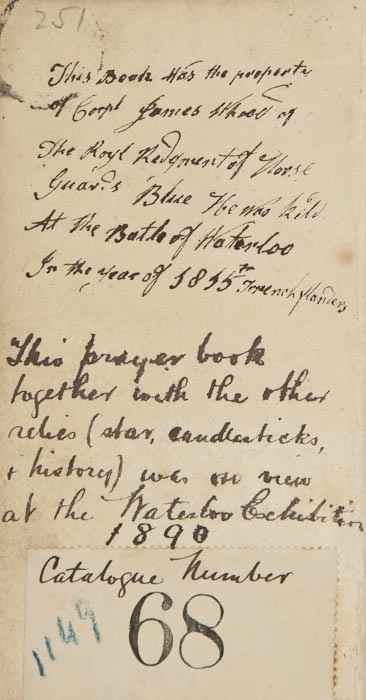 251
This Book Was the property
of Corpl James Wheel of
The Royl Redgment of Horse
Guards Blue He was Kild
At the Battle of Waterloo
In the year of 1815 French flanders
This prayer book
together with the other
relics (star, candlesticks,
& history) was on view
at the Waterloo Exhibition
1890
Catalogue Number
68
1149